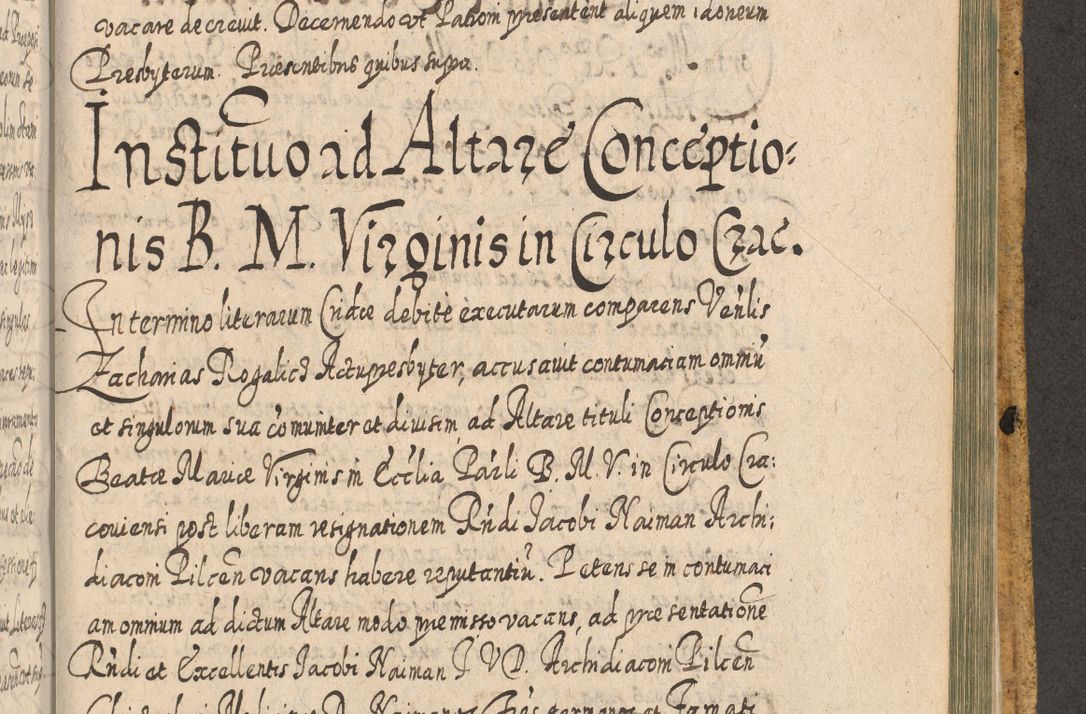 vacare decreuit. Decernendo vt Patrom presentent aliquem idoneum
Presbyterum. Præsentibus quibus supra.
Institutio ad Altare Conceptio:
nis B. M. Virginis in Circulo Crac.
In termino literarum Cridæ debitè executarum comparens Veńlis
Zacharias Rogalicz Actupresbyter, accusauit contumaciam ommū
et singulorum sua comuniter et diuisim, ad Altare tituli Conceptionis
Beatæ Mariæ Virginis in Eccłia Parłi B. M. V. in Circulo Cra:
couiensi post liberam resignationem Rńdi Jacobi Naiman Archi:
diaconi Pilceń vacans habere reputantiū. Petens se in contumaci
am omnium ad dictum Altare modo præmisso vacans, ad præsentationē
Rńdi et Excellentis Jacobi Naiman J V D. Archidiaconi Pilceń